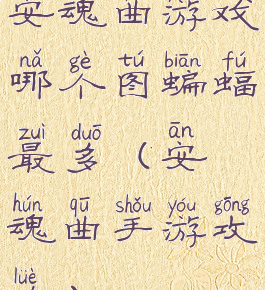 安魂曲游戏
nǎ gè tú biān fú
哪个图蝙蝠
zuì duō ān
最多(安
hún qū shǒu yóu gōng
魂曲手游攻
lüè